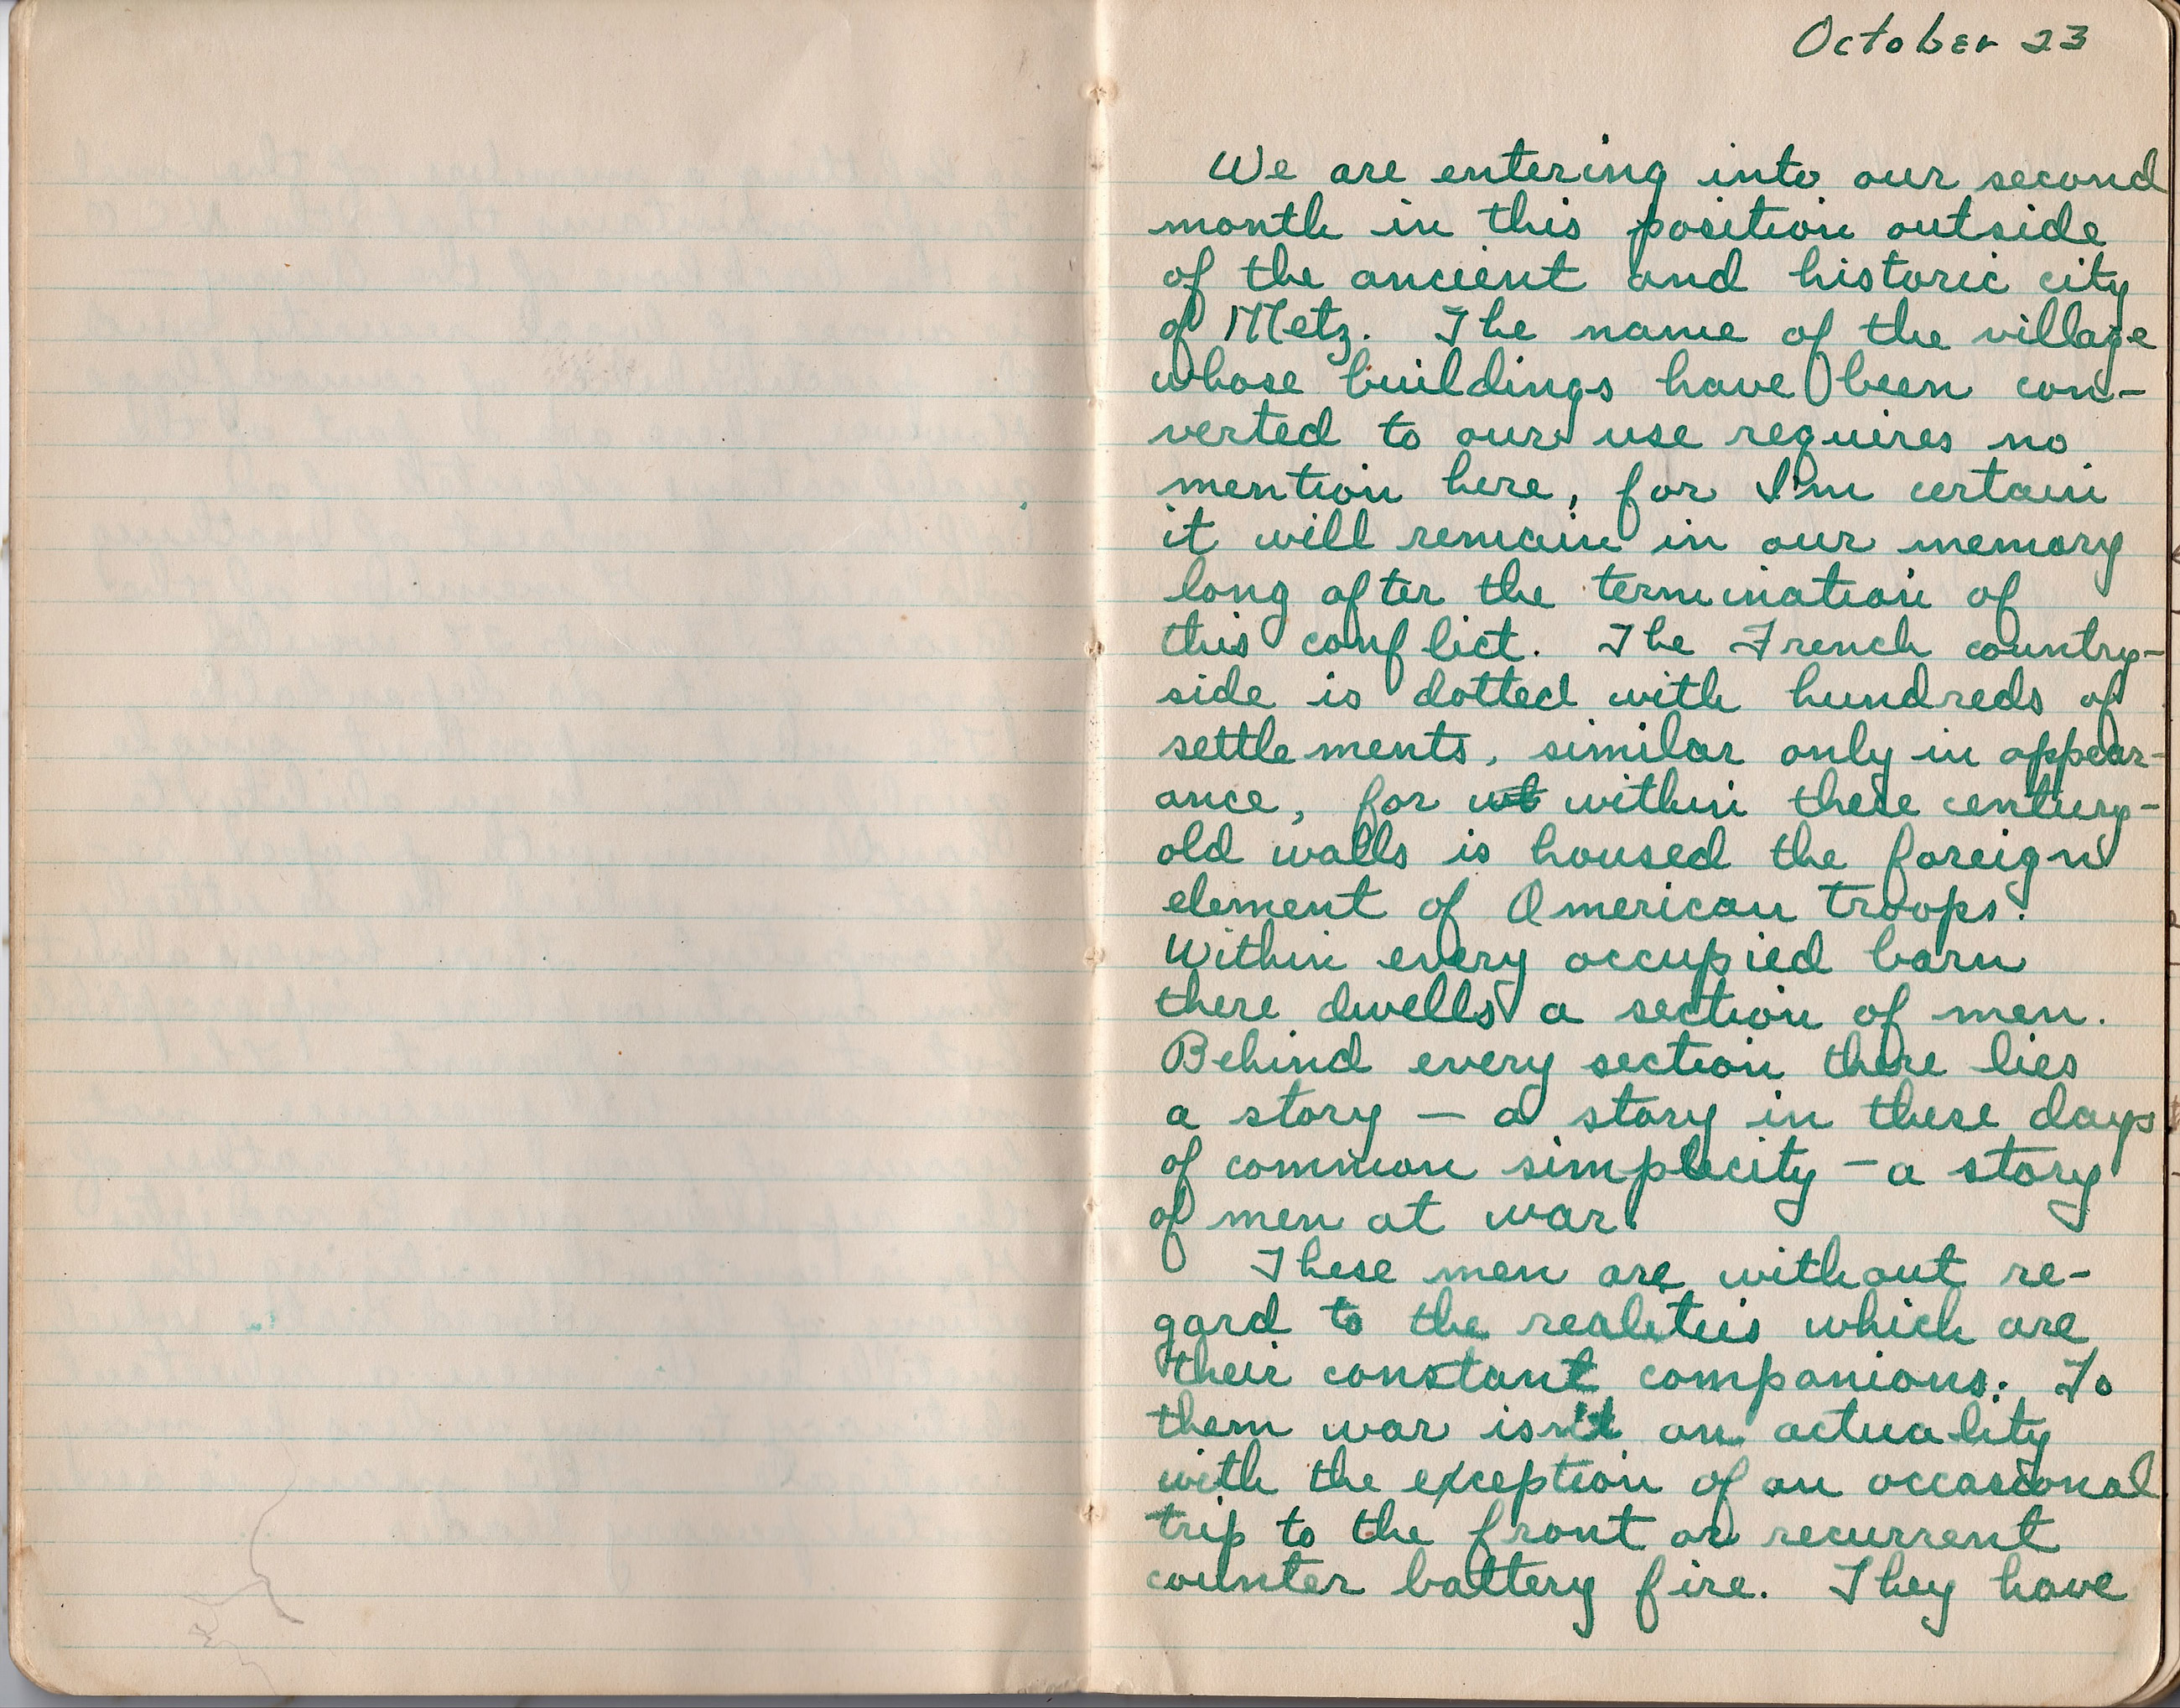 October 23
We are entering into our second
month in this position outside
of the ancient and historic city
of Metz. The name of the village
whose buildings have been con-
verted to our use requires no
mention here, for I'm certain
it will remain in our memory
long after the termination of
this conflict. The French country-
side is dotted with hundreds of
settlements, similar only in appear-
ance, for wt within these century-
old walls is housed the foreign
element of American troops.
Within every occupied barn
there dwells a section of men.
Behind every section there lies
a story — a story in these days
of common simplicity — a story
of men at war.
These men are without re-
gard to the realities which are
their constant companions. To
them war isn't an actuality
with the exception of an occasional
trip to the front or recurrent
counter battery fire. They have